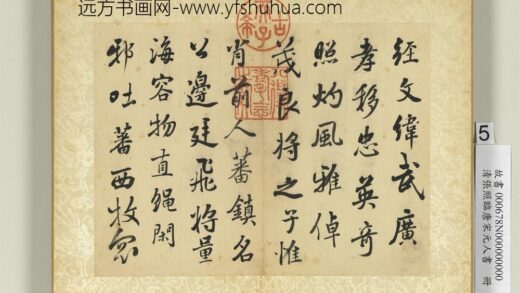 远方书画网- www.yfshuhua.com
經文緯武廣
孝移忠英奇
照灼風雅倬
茂良將之子惟
肖前人蕃鎮名
公邊廷飛將量
海容物直繩閑
邪吐蕃西牧忽
5
故書000678N000000000
清張照臨唐宋元人書 冊